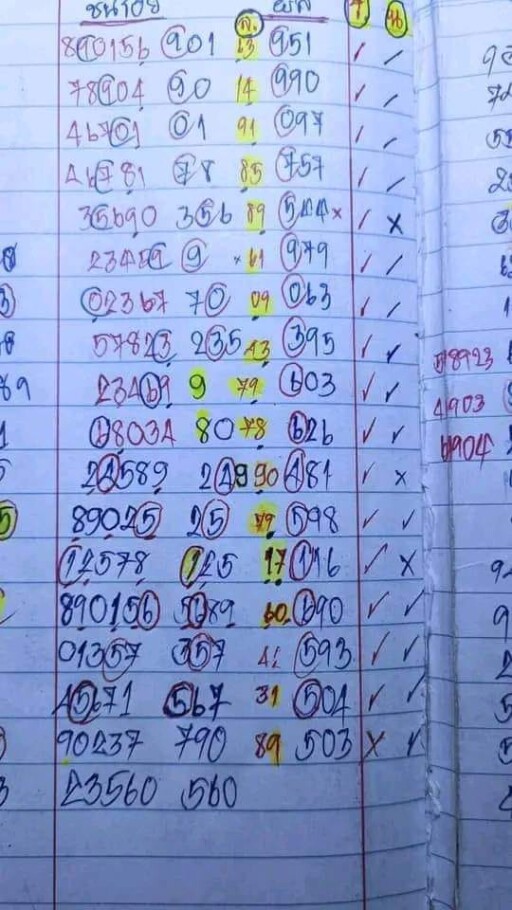 ชนร้อย ล. ผล ร น
890156 901 63 951 ✓ ✓
78904 90 14 990 ✓ ✓
46701 01 91 097 ✓ ✓
46781 78 85 757 ✓ ✓
35690 356 89 544× ✓ ×
23489 9 ×61 979 ✓ ✓
02367 70 09 063 ✓ ✓
57823 235 43 395 ✓ ✓ 58923
23469 9 79 603 ✓ ✓ 4903
68034 80 78 626 ✓ ✓ 6904
24589 249 90 481 ✓ ×
89025 25 79 598 ✓ ✓
12578 125 17 116 ✓ ×
890156 5689 60 690 ✓ ✓
01357 357 42 593 ✓ ✓
45671 567 31 504 ✓ ✓
90237 790 89 503 × ✓
23560 560